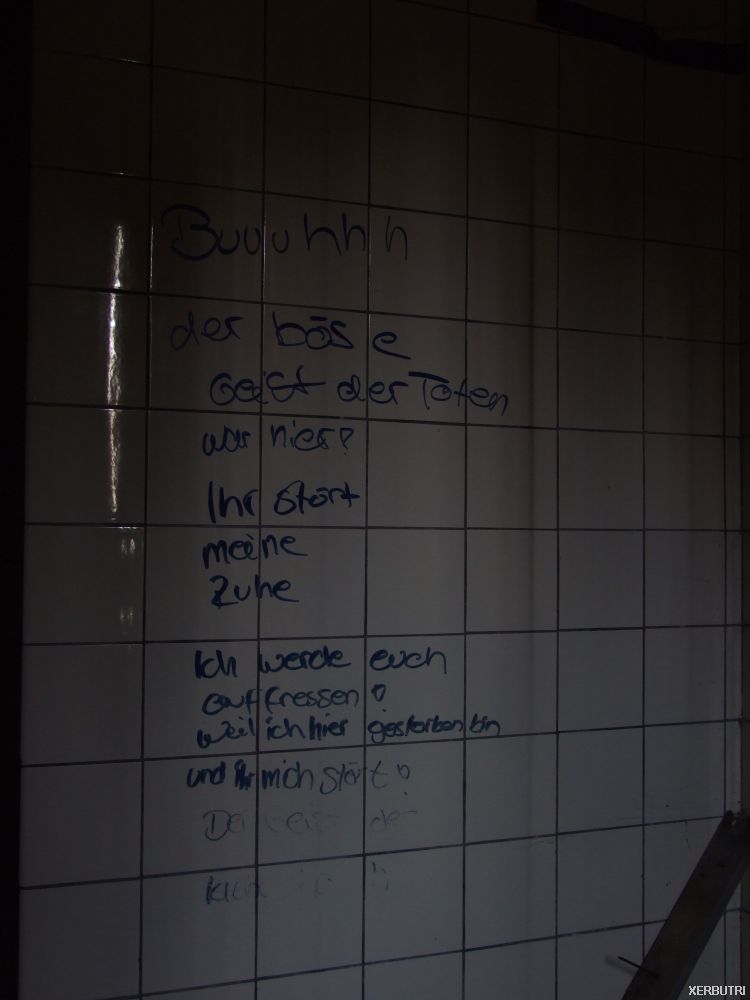 Buuuhhh
der böse
Geist der Toten
war hier!
Ihr stört
meine
Ruhe
Ich werde euch
auffressen!
weil ich hier gestorben bin
und ihr mich stört!
der
XERBUTRI